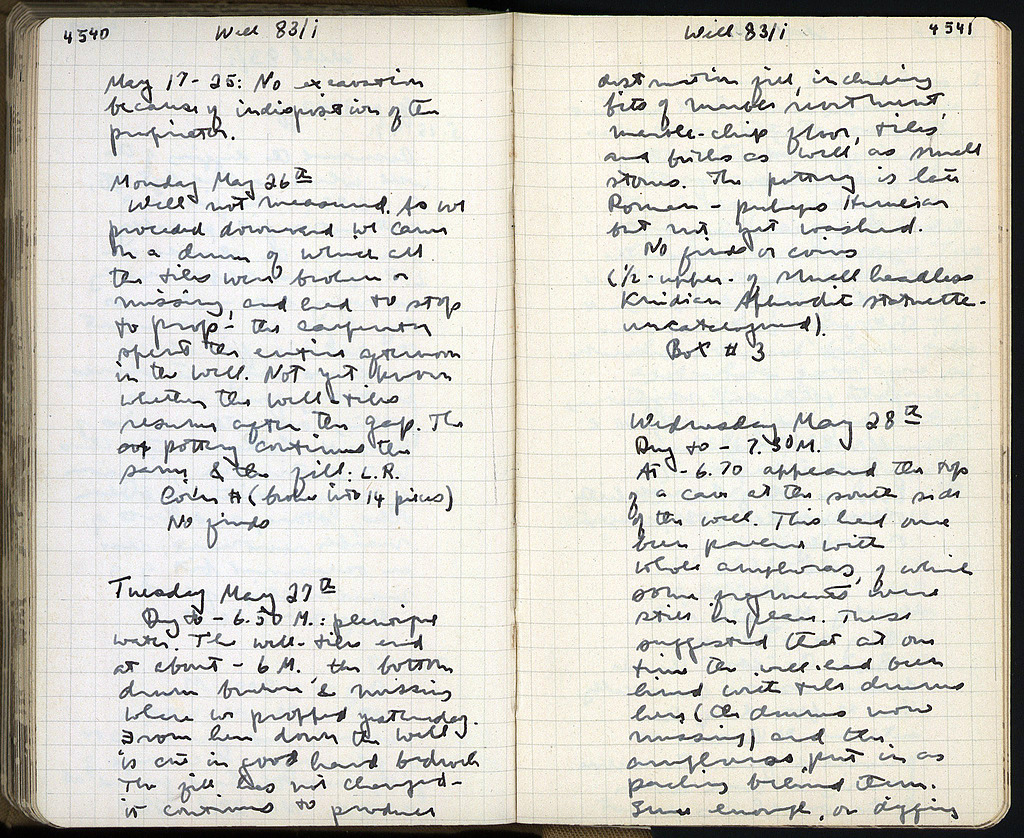 4540
Well 83/1
May 17-25: No excavation
because of indisposition of the
proprietor.
Monday May 26th
Well not measured. As we
proceeded downward we came
on a drum of which all
the tiles were broken or
missing, and had to stop
to prop - the carpenter
spent the entire afternoon
in the well. Not yet known
whether the well-tiles
resume after the gap. The
pottery continues the
same & the fill: L.R.
Coins # (broke into 14 pieces)
No finds
Tuesday May 27th
Dug to - 6.50 M.: plentiful
water. The well-tiles end
at about - 6 M. the bottom
drum broken & missing
where we propped yesterday.
From here down the well
is cut in good hard bedrock
The fill has not changed -
it continues to produce
Well 83/1
4541
destruction fill, including
bits of marble revetment,
marble-chip floor, tiles,
and bricks as well as small
stones. The pottery is late
Roman - perhaps Herulian
but not yet washed.
No finds or coins
(1/2 - upper - of small headless
Knidian Aphrodite statuette -
uncatalogued).
Box # 3
Wednesday May 28th
Dug to - 7.30 M.
At - 6.70 appeared the top
of a cave at the south side
of the well. This had once
been packed with
whole amphoras, of which
some fragments were
still in place. These
suggested that at one
time the well had been
lined with tile drums
here (the drums now
missing) and the
amphoras put in as
packing behind them.
Sure enough, on digging